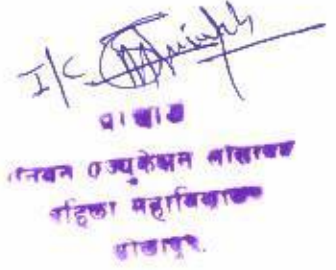 I/C
प्राचार्य
युनियन एज्युकेशन सोसायटी
महिला महाविद्यालय
सोलापूर.